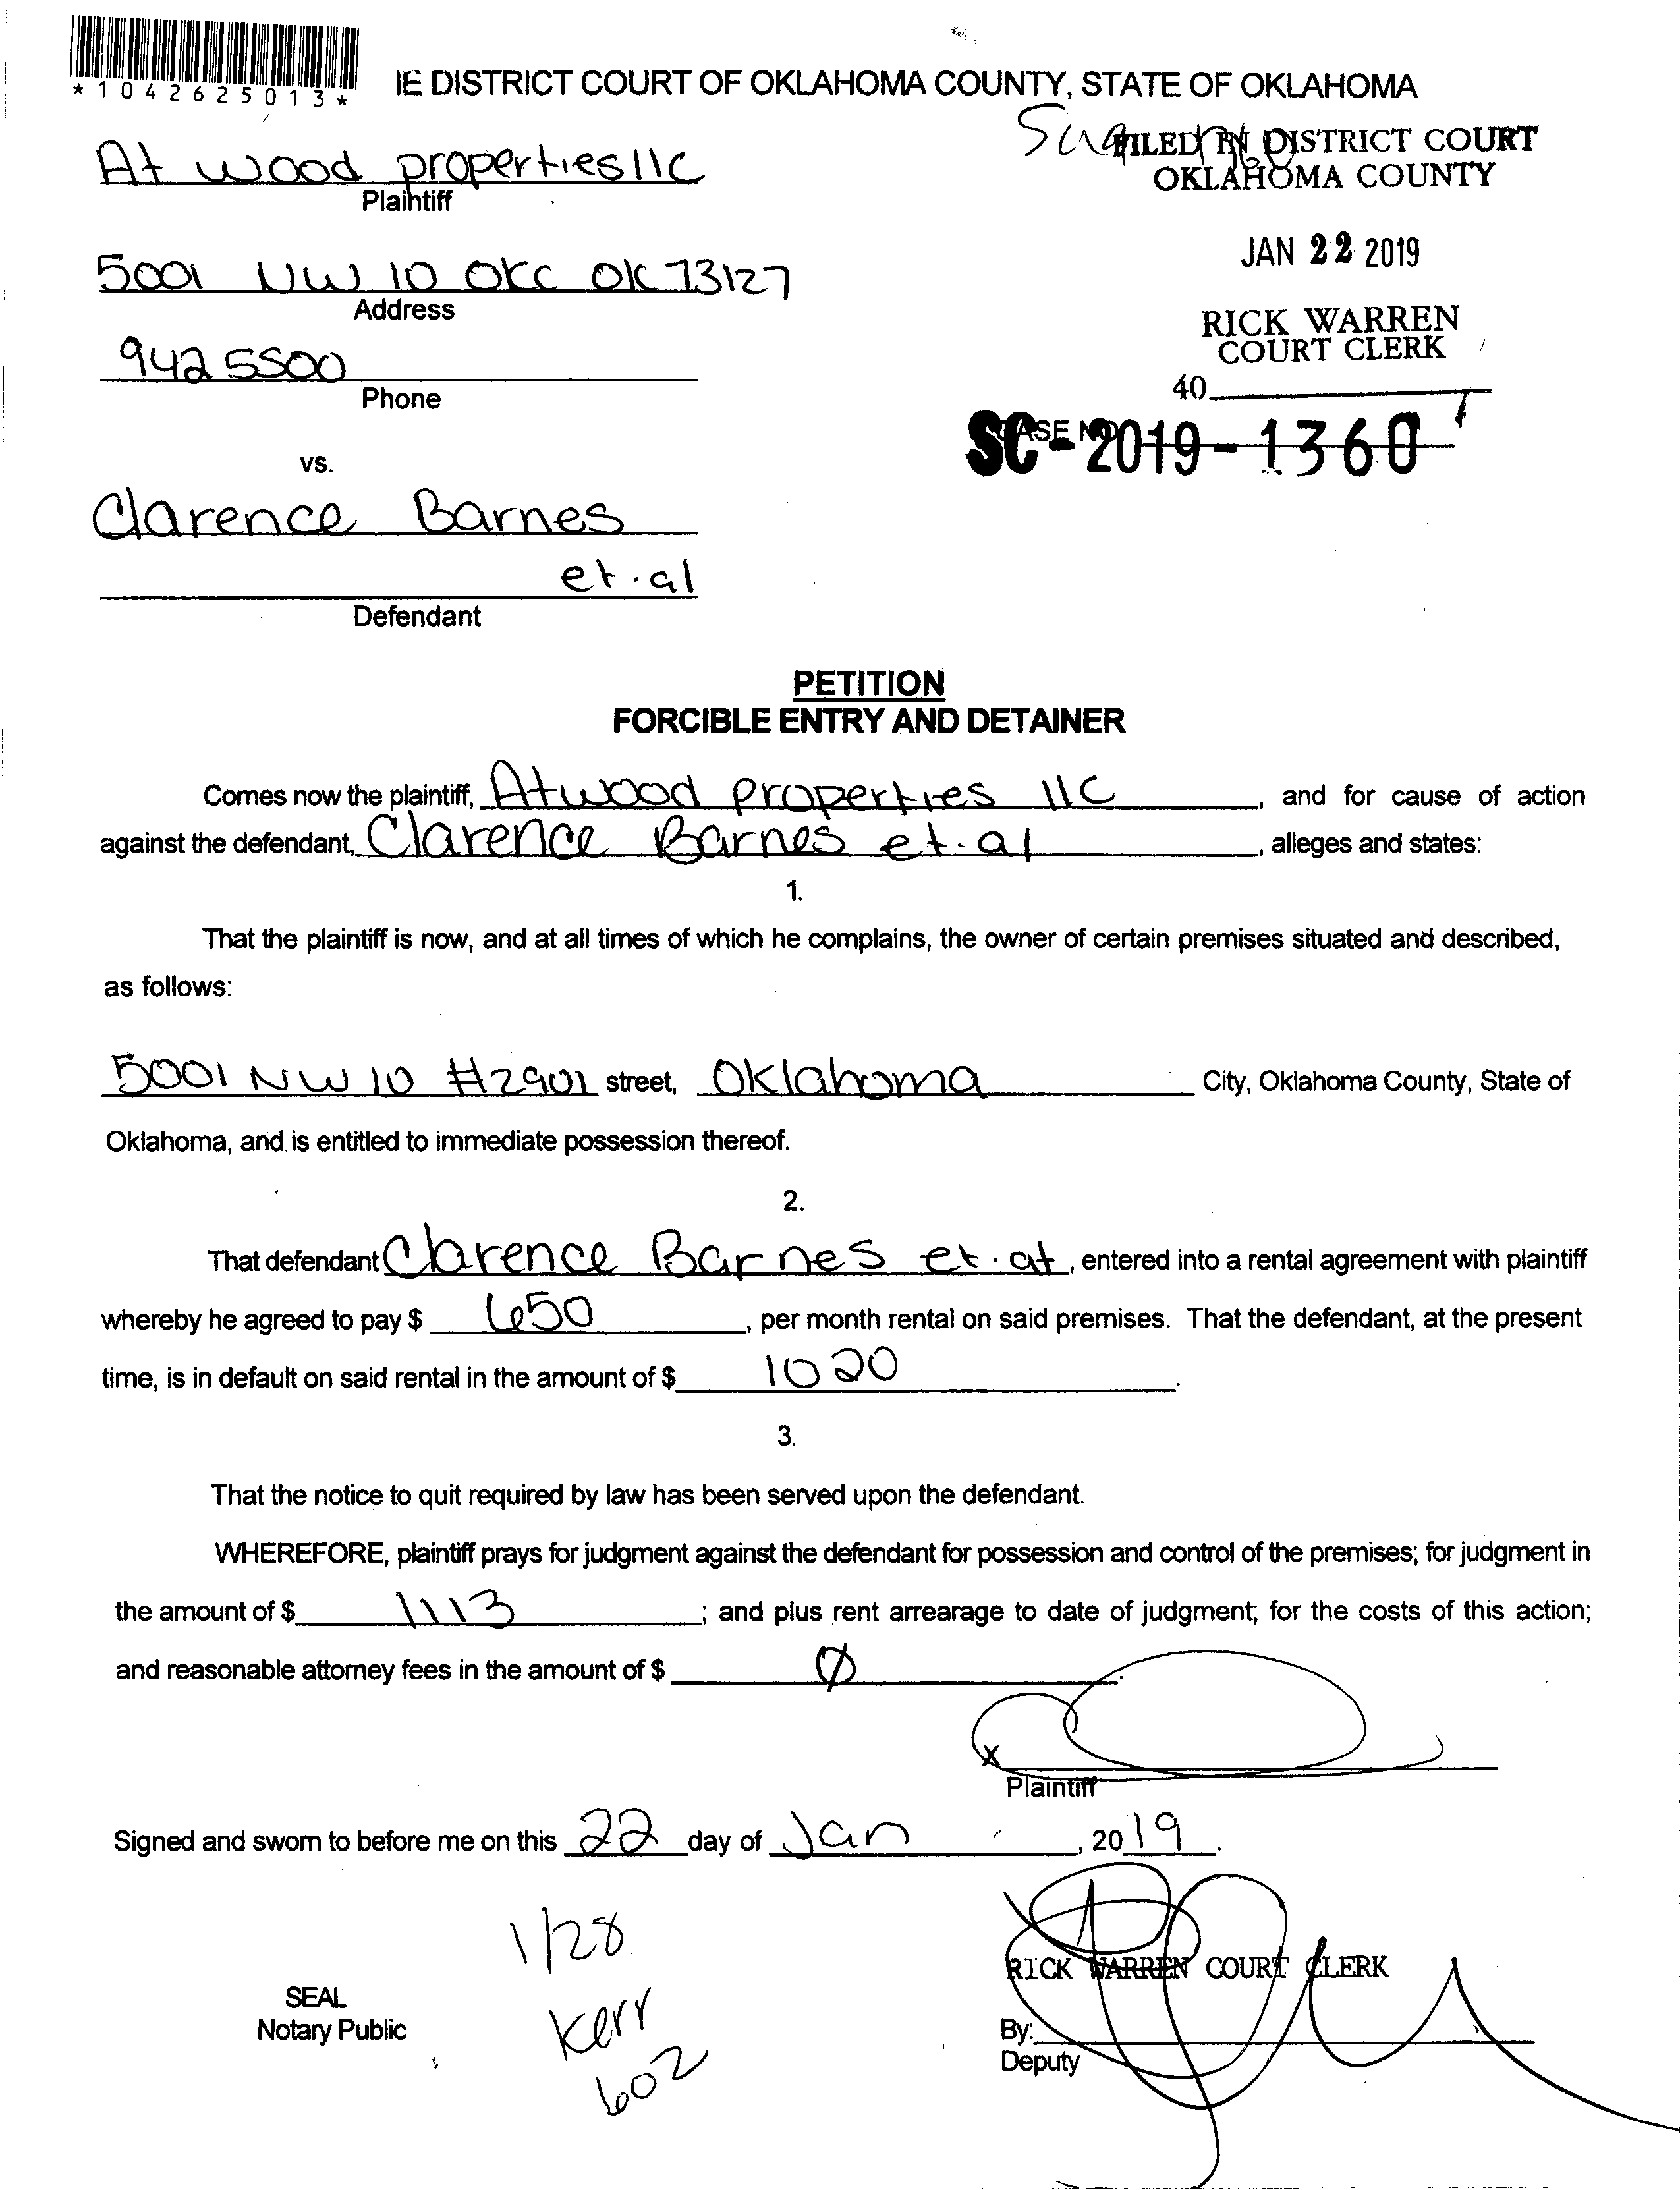 *1042625013*
IE DISTRICT COURT OF OKLAHOMA COUNTY, STATE OF OKLAHOMA
At wood properties llc
Plaintiff
FILED IN DISTRICT COURT
OKLAHOMA COUNTY
5001 NW 10 OKC OK 73127
Address
JAN 22 2019
9425500
Phone
RICK WARREN
COURT CLERK
40
CASE NO.
SC-2019-1360
vs.
Clarence Barnes
et.al
Defendant
PETITION
FORCIBLE ENTRY AND DETAINER
Comes now the plaintiff, Atwood properties llc, and for cause of action
against the defendant, Clarence Barnes et.al, alleges and states:
1.
That the plaintiff is now, and at all times of which he complains, the owner of certain premises situated and described,
as follows:
5001 NW 10 #2901 street, Oklahoma City, Oklahoma County, State of
Oklahoma, and is entitled to immediate possession thereof.
2.
That defendant Clarence Barnes et.al, entered into a rental agreement with plaintiff
whereby he agreed to pay $ 650, per month rental on said premises. That the defendant, at the present
time, is in default on said rental in the amount of $ 1020.
3.
That the notice to quit required by law has been served upon the defendant.
WHEREFORE, plaintiff prays for judgment against the defendant for possession and control of the premises; for judgment in
the amount of $ 1113; and plus rent arrearage to date of judgment; for the costs of this action;
and reasonable attorney fees in the amount of $ Ø.
x
Plaintiff
Signed and sworn to before me on this 22 day of Jan, 2019.
1/28
Kerr
602
SEAL
Notary Public
RICK WARREN COURT CLERK
By:
Deputy